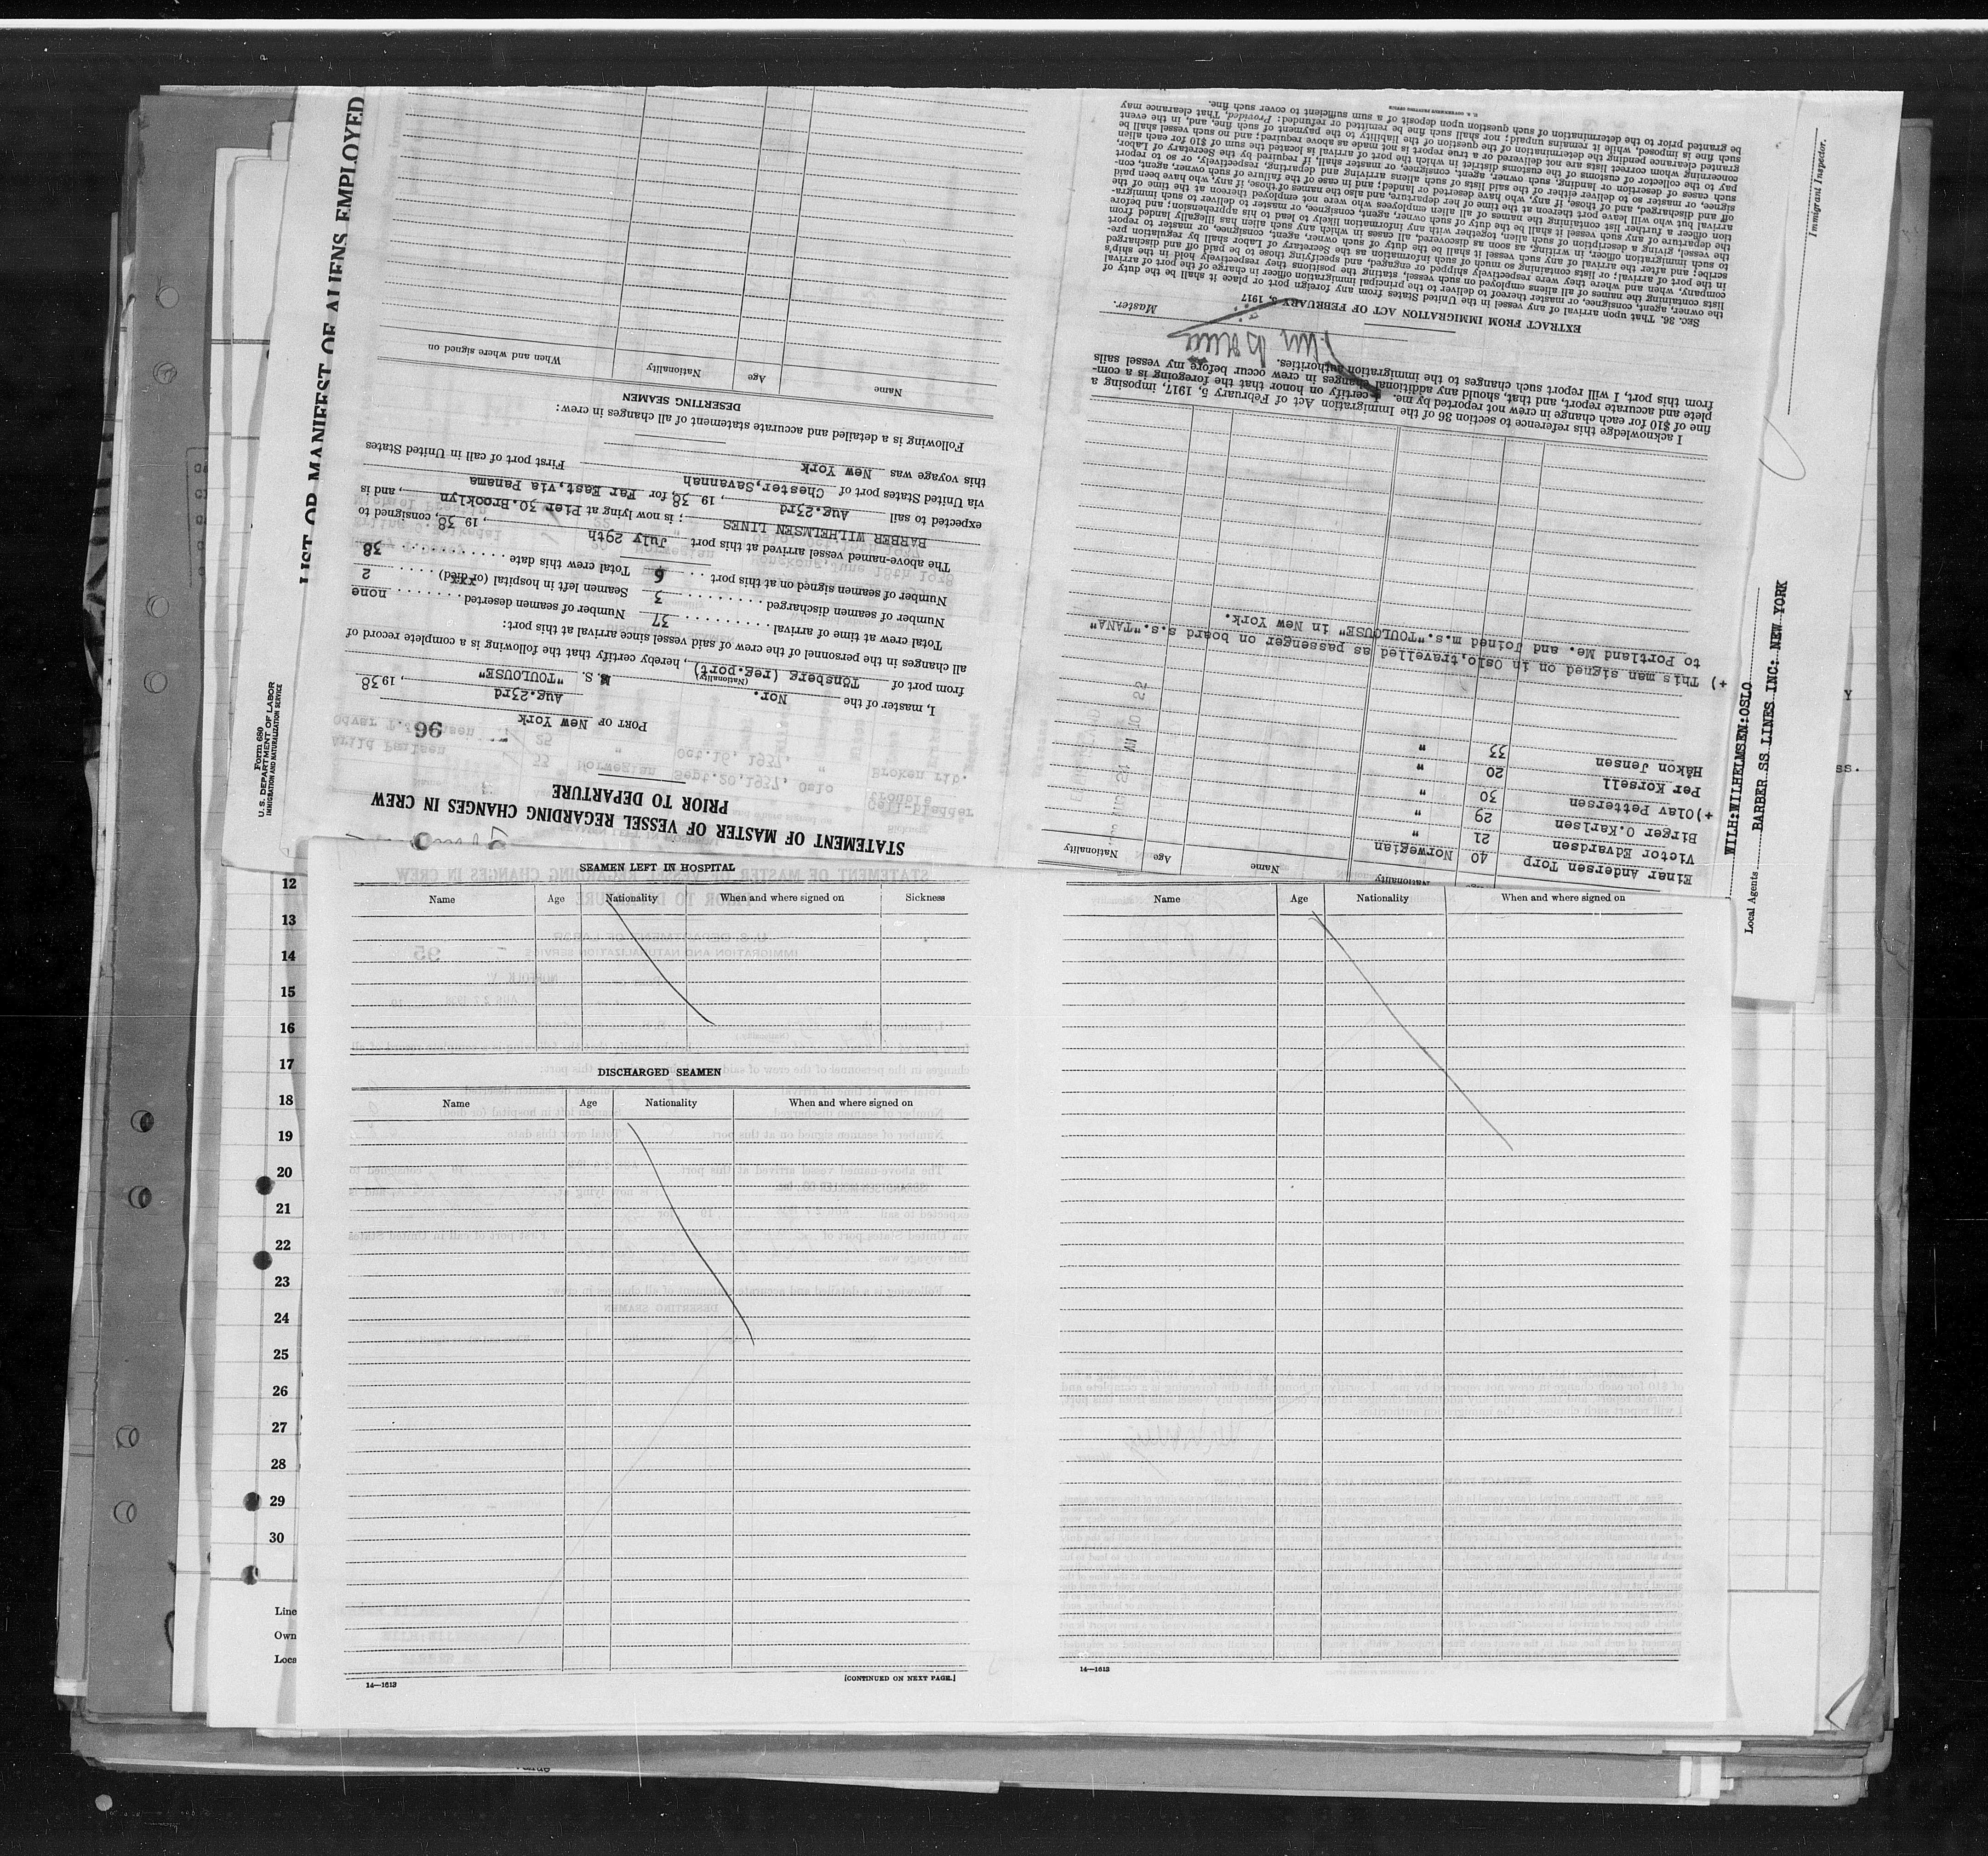 LIST OR MANIFEST OF ALIENS EMPLOYED
Form 680
U. S. DEPARTMENT OF LABOR
IMMIGRATION AND NATURALIZATION SERVICE
STATEMENT OF MASTER OF VESSEL REGARDING CHANGES IN CREW
PRIOR TO DEPARTURE
96
PORT OF New York
Aug.23rd, 1938
I, master of the Nor. M. S. "TOULOUSE"
(Nationality)
from port of Tönsberg (reg.port), hereby certify that the following is a complete record of
all changes in the personnel of the crew of said vessel since arrival at this port:
Total crew at time of arrival 37 Number of seamen deserted none
Number of seamen discharged 3 Seamen left in hospital (or died) 2
Number of seamen signed on at this port 6 Total crew this date 38
The above-named vessel arrived at this port July 29th, 19 38, consigned to
BARBER WILHELMSEN LINES; is now lying at Pier 30.Brooklyn, and is
expected to sail Aug.23rd, 19 38, for Far East,via Panama
via United States port of Chester,Savannah First port of call in United States
this voyage was New York
Following is a detailed and accurate statement of all changes in crew:
DESERTING SEAMEN
Name Age Nationality When and where signed on
Name Age Nationality
Einar Andersen Torp 40 Norwegian
Victor Edvardsen 21 "
Birger O.Karlsen 29 "
+)Olav Pettersen 30 "
Per Korsell 20 "
Håkon Jensen 33 "
+) This man signed on in Oslo,travelled as passenger on board s.s."TANA"
to Portland Me. and joined m.s."TOULOUSE" in New York.
I acknowledge this reference to section 36 of the Immigration Act of February 5, 1917, imposing a
fine of $10 for each change in crew not reported by me. I certify on honor that the foregoing is a com-
plete and accurate report, and that, should any additional changes in crew occur before my vessel sails
from this port, I will report such changes to the immigration authorities.
Master.
EXTRACT FROM IMMIGRATION ACT OF FEBRUARY 5, 1917
SEC. 36. That upon arrival of any vessel in the United States from any foreign port or place it shall be the duty of
the owner, agent, consignee, or master thereof to deliver to the principal immigration officer in charge of the port of arrival
lists containing the names of all aliens employed on such vessel, stating the positions they respectively hold in the ship's
company, when and where they were respectively shipped or engaged, and specifying those to be paid off and discharged
in the port of arrival; or lists containing so much of such information as the Secretary of Labor shall by regulation pre-
scribe; and after the arrival of any such vessel it shall be the duty of such owner, agent, consignee, or master to report
to such immigration officer, in writing, as soon as discovered, all cases in which any such alien has illegally landed from
the vessel, giving a description of such alien, together with any information likely to lead to his apprehension; and before
the departure of any such vessel it shall be the duty of such owner, agent, consignee, or master to deliver to such immigra-
tion officer a further list containing the names of all alien employees who were not employed thereon at the time of the
arrival but who will leave port thereon at the time of her departure, and also the names of those, if any, who have been paid
off and discharged, and of those, if any, who have deserted or landed; and in case of the failure of such owner, agent, con-
signee, or master so to deliver either of the said lists of such aliens arriving and departing, respectively, or so to report
such cases of desertion or landing, such owner, agent, consignee, or master shall, if required by the Secretary of Labor,
pay to the collector of customs of the customs district in which the port of arrival is located the sum of $10 for each alien
concerning whom correct lists are not delivered or a true report is not made as above required; and no such vessel shall be
granted clearance pending the determination of the question of the liability to the payment of such fine, and, in the event
such fine is imposed, while it remains unpaid; nor shall such fine be remitted or refunded: Provided, That clearance may
be granted prior to the determination of such question upon deposit of a sum sufficient to cover such fine.
Immigrant Inspector.
WILH:WILHELMSEN:OSLO
Local Agents BARBER SS LINES INC: NEW YORK
SEAMEN LEFT IN HOSPITAL
Name Age Nationality When and where signed on Sickness
DISCHARGED SEAMEN
Name Age Nationality When and where signed on
14—1613
[CONTINUED ON NEXT PAGE.]
Name Age Nationality When and where signed on
14—1613
12
13
14
15
16
17
18
19
20
21
22
23
24
25
26
27
28
29
30
Line
Own
Loca